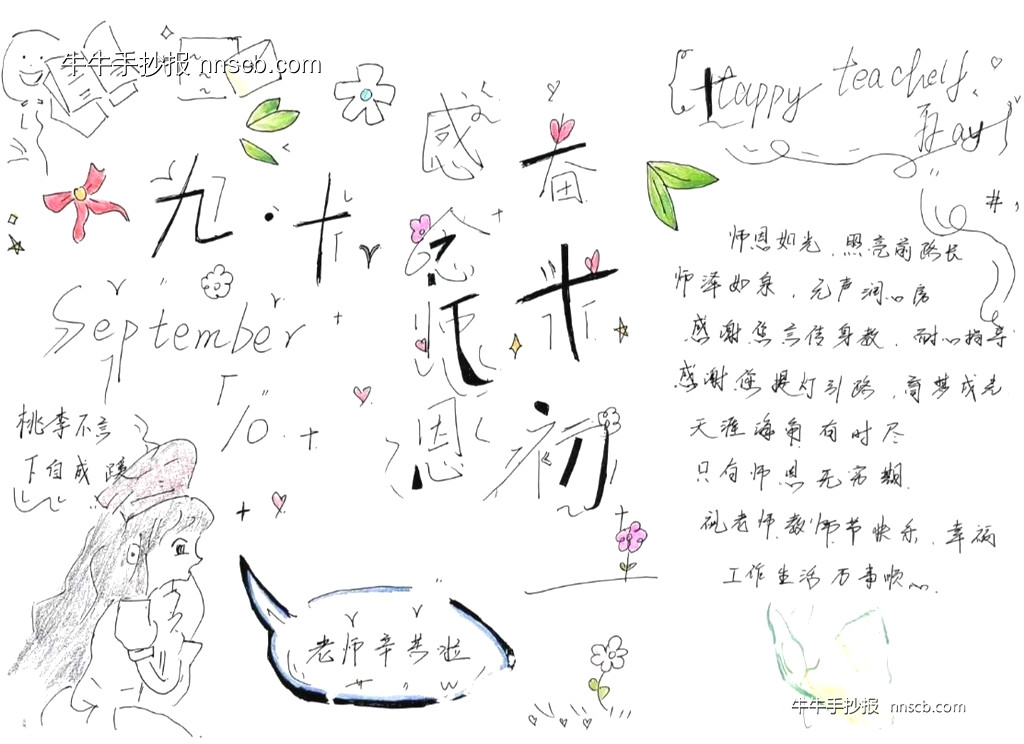 牛牛手抄报 nnscb.com
{Happy teachers,
Day}
九·十
September
10
感念师恩
奋木初
桃李不言
下自成蹊
老师辛苦啦
师恩如光,照亮前路长
师泽如泉,无声润心房
感谢您言传身教,耐心指导
感谢您提灯引路,育梦成光
天涯海角有时尽
只有师恩无穷期
祝老师教师节快乐,幸福
工作生活万事顺心
牛牛手抄报 nnscb.com